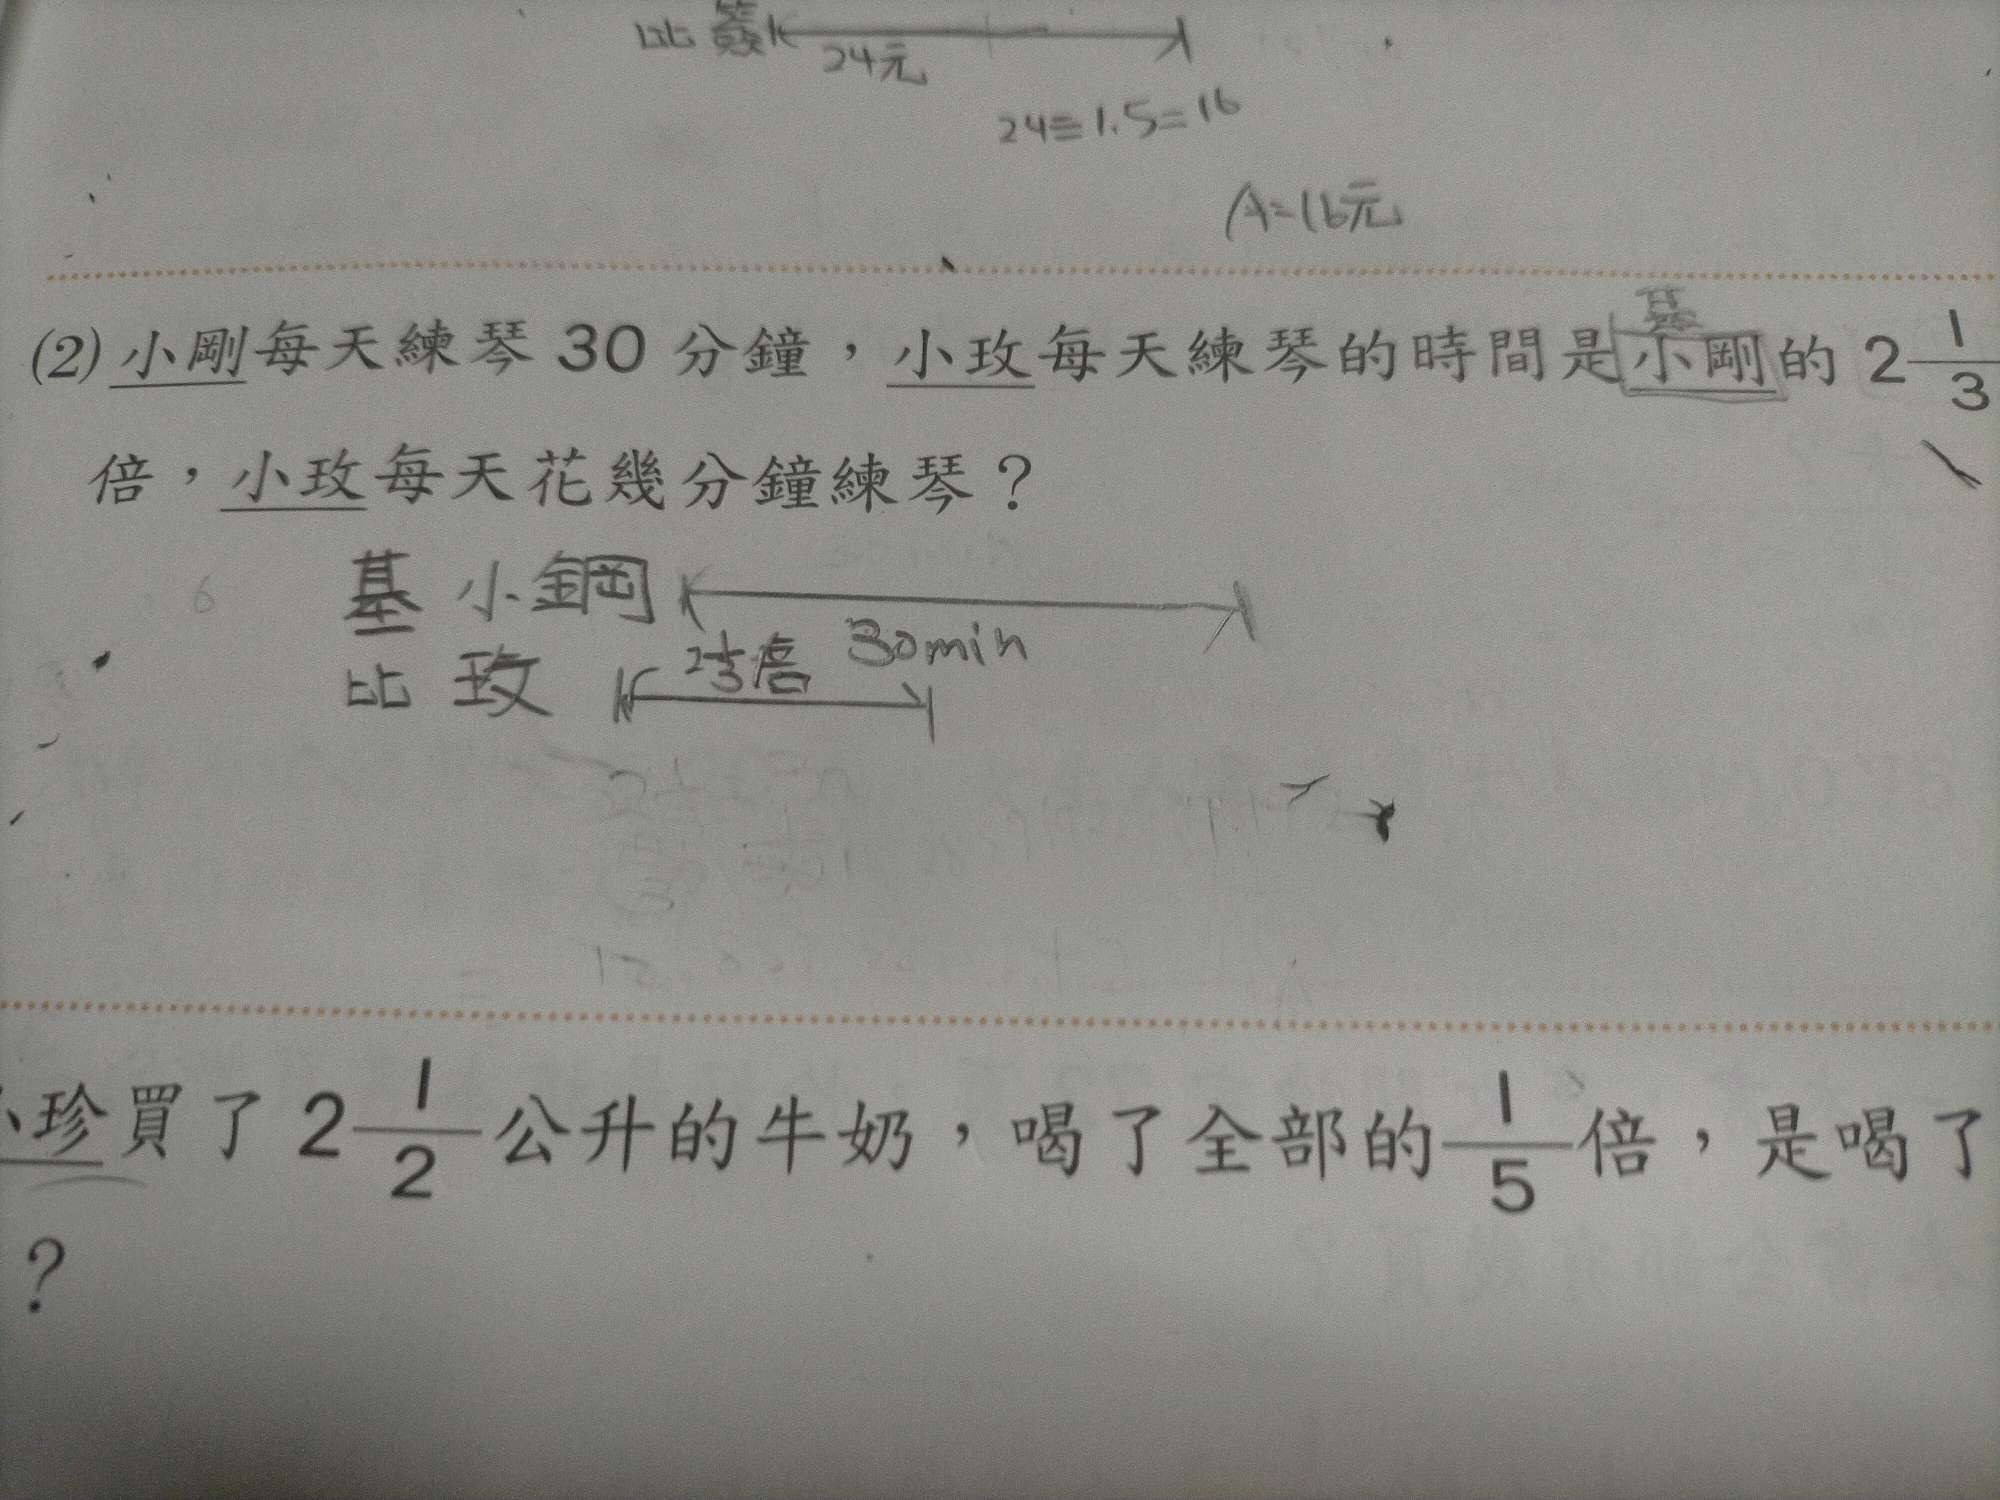 比簽 24元
24÷1.5=16
A=16元
(2)小剛每天練琴30分鐘，小玫每天練琴的時間是小剛的2 1/3
基
倍，小玫每天花幾分鐘練琴？
基 小鋼 30min
比 玫 2 1/3倍
小珍買了2 1/2公升的牛奶，喝了全部的1/5倍，是喝了
？